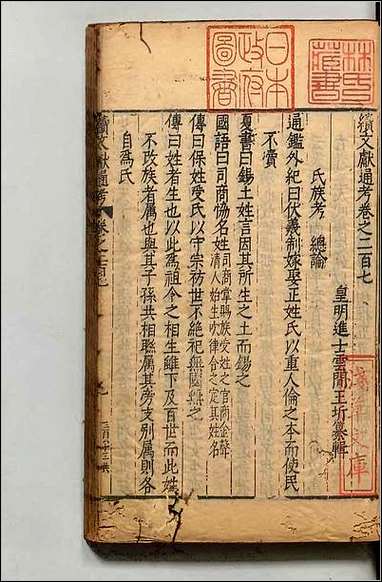 續文獻通考卷之二百七
皇明進士雲間王圻纂輯
氏族考 總論
通鑑外紀曰伏羲制嫁娶正姓氏以重人倫之本而使民
不瀆
夏書曰錫土姓言因其所生之土而錫之
國語曰司商協名姓司商掌賜族受姓之官商金聲
清人始生吹律合之定其姓名
傳曰保姓受氏以守宗祊世不絶祀無國無之
傳曰姓者生也以此爲祖令之相生雖下及百世而此姓
不改族者屬也與其子孫共相聯屬其旁支別属則各
自爲氏
續文獻通考
卷之二百七
日本
政府
圖書
林氏
藏書
淺草文庫